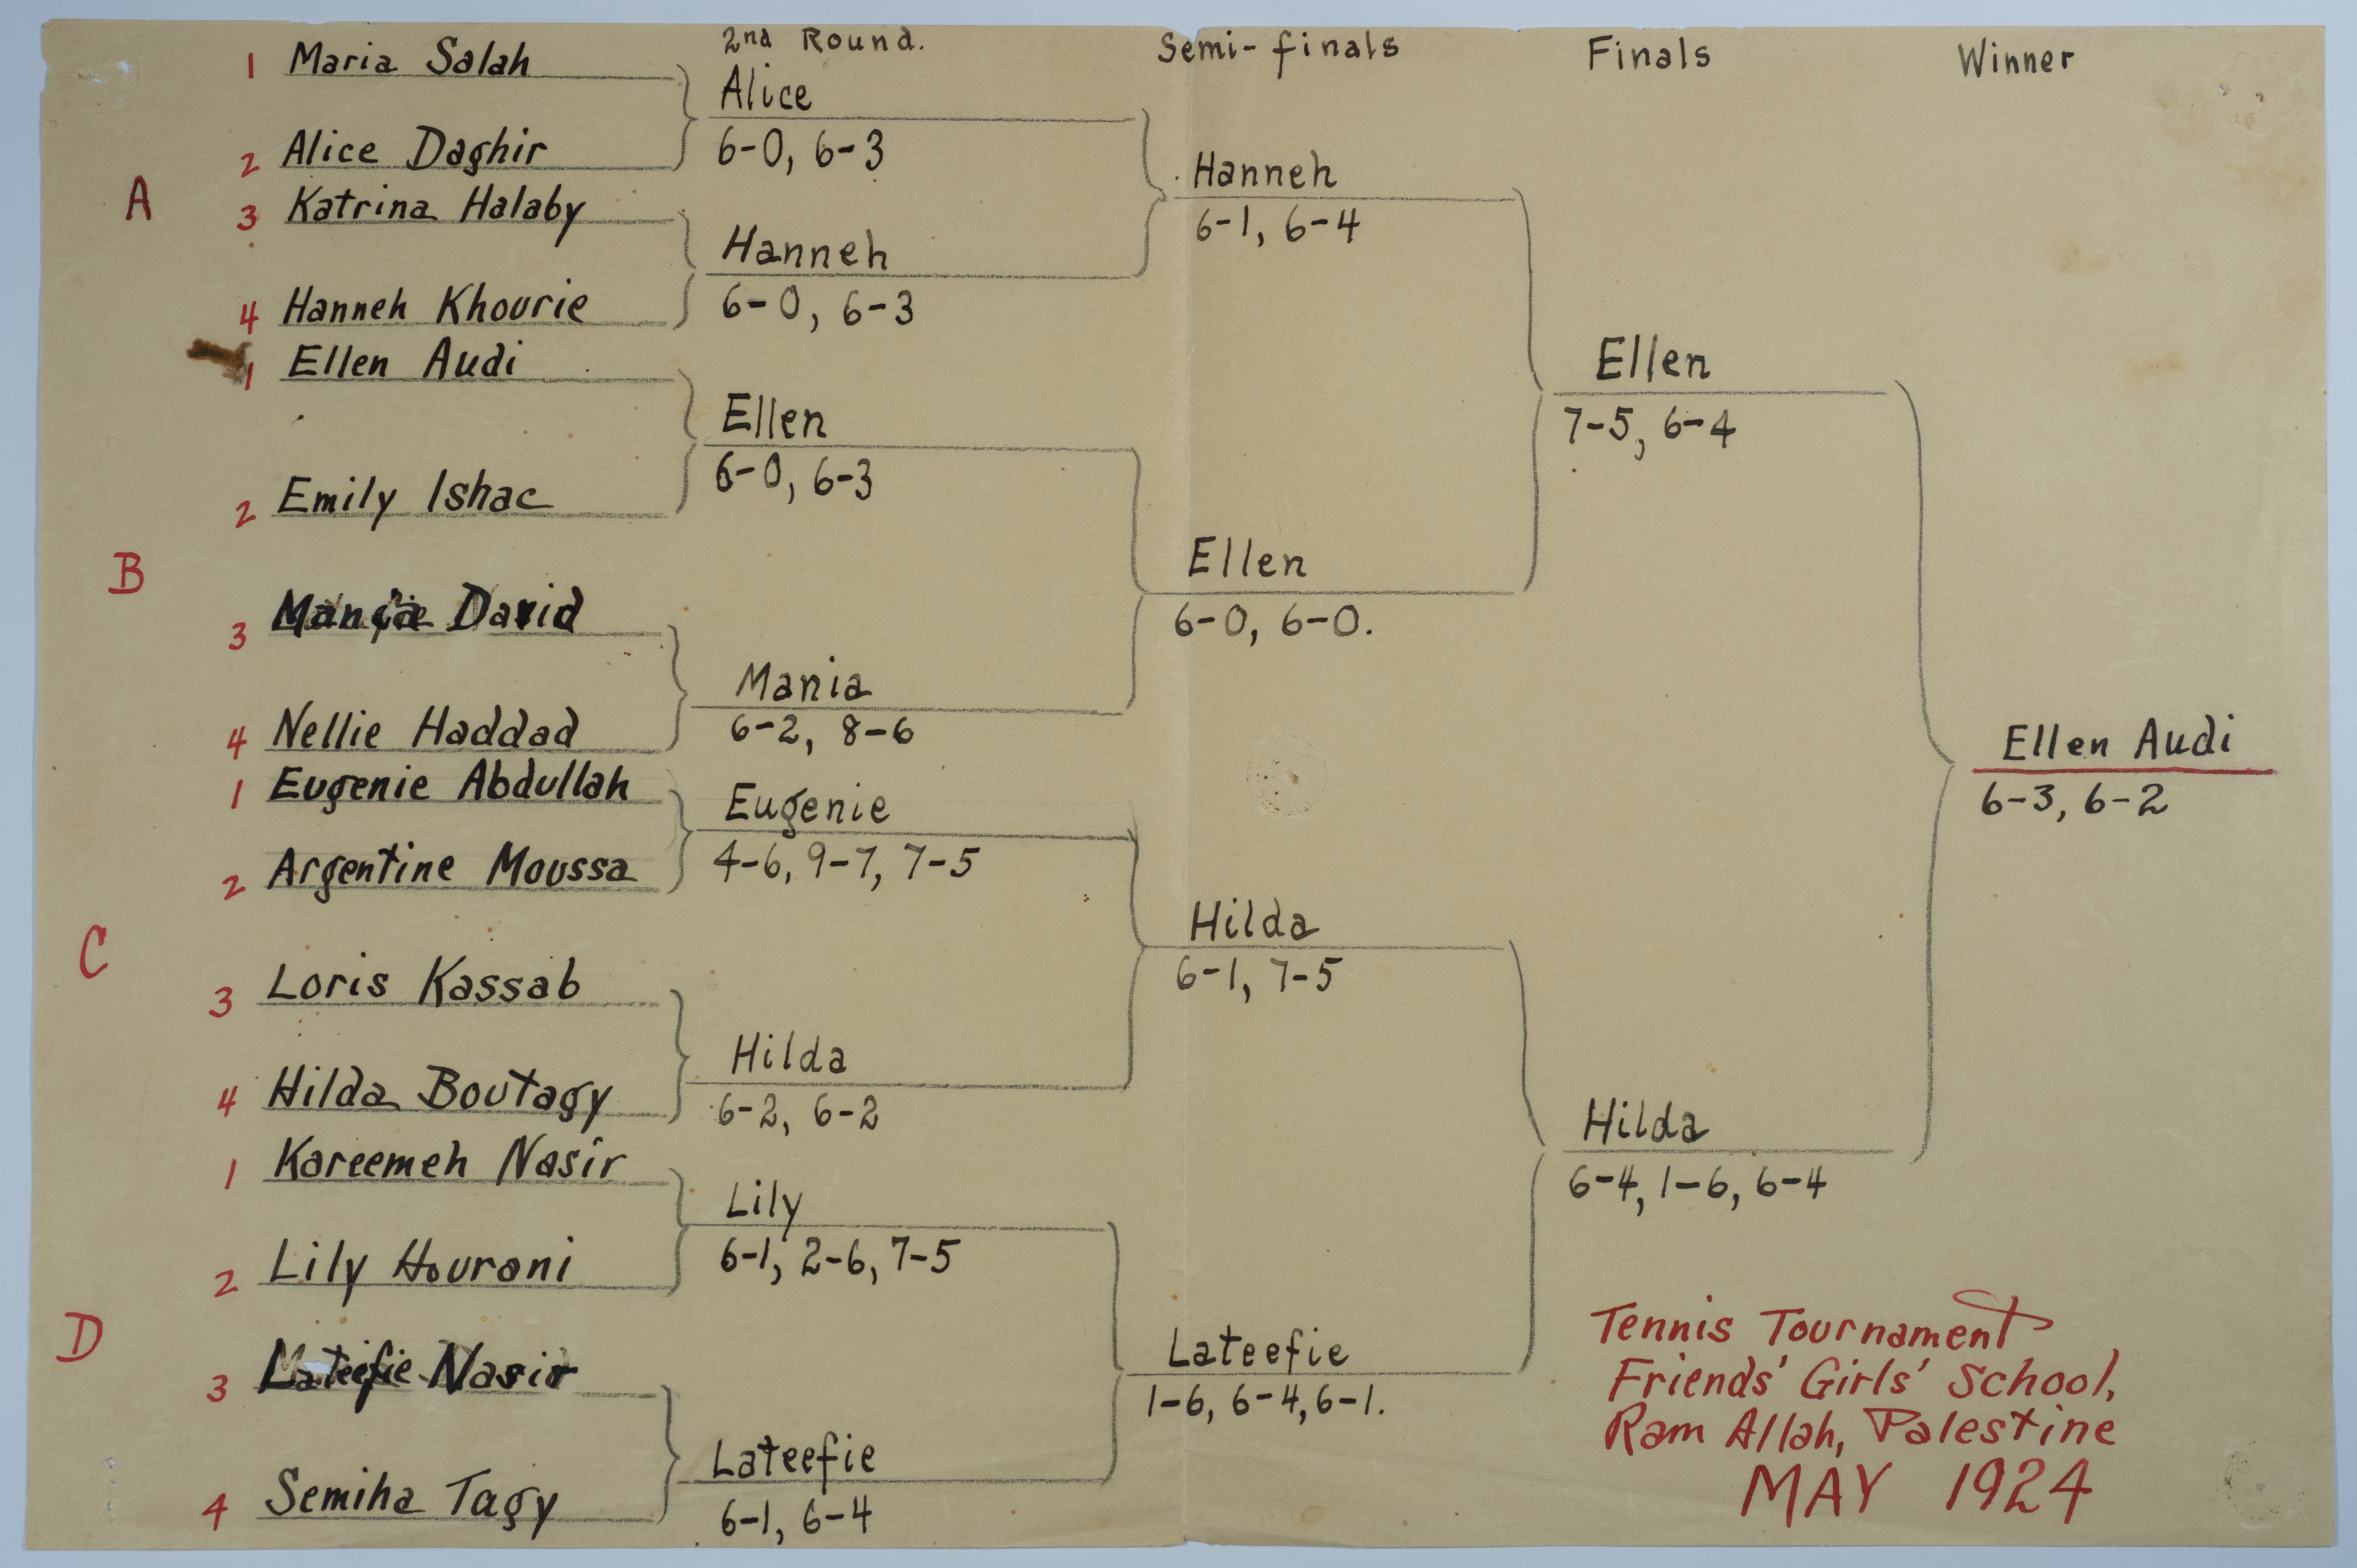 2nd Round.
Semi-finals
Finals
Winner
A
1 Maria Salah
2 Alice Daghir
3 Katrina Halaby
4 Hanneh Khourie
B
1 Ellen Audi
2 Emily Ishac
3 Mania David
4 Nellie Haddad
C
1 Eugenie Abdullah
2 Argentine Moussa
3 Loris Kassab
4 Hilda Boutagy
D
1 Kareemeh Nasir
2 Lily Hourani
3 Lateefie Nasir
4 Semiha Tagy
Alice
6-0, 6-3
Hanneh
6-0, 6-3
Ellen
6-0, 6-3
Mania
6-2, 8-6
Eugenie
4-6, 9-7, 7-5
Hilda
6-2, 6-2
Lily
6-1, 2-6, 7-5
Lateefie
6-1, 6-4
Hanneh
6-1, 6-4
Ellen
6-0, 6-0.
Hilda
6-1, 7-5
Lateefie
1-6, 6-4, 6-1.
Ellen
7-5, 6-4
Hilda
6-4, 1-6, 6-4
Ellen Audi
6-3, 6-2
Tennis Tournament
Friends' Girls' School,
Ram Allah, Palestine
MAY 1924